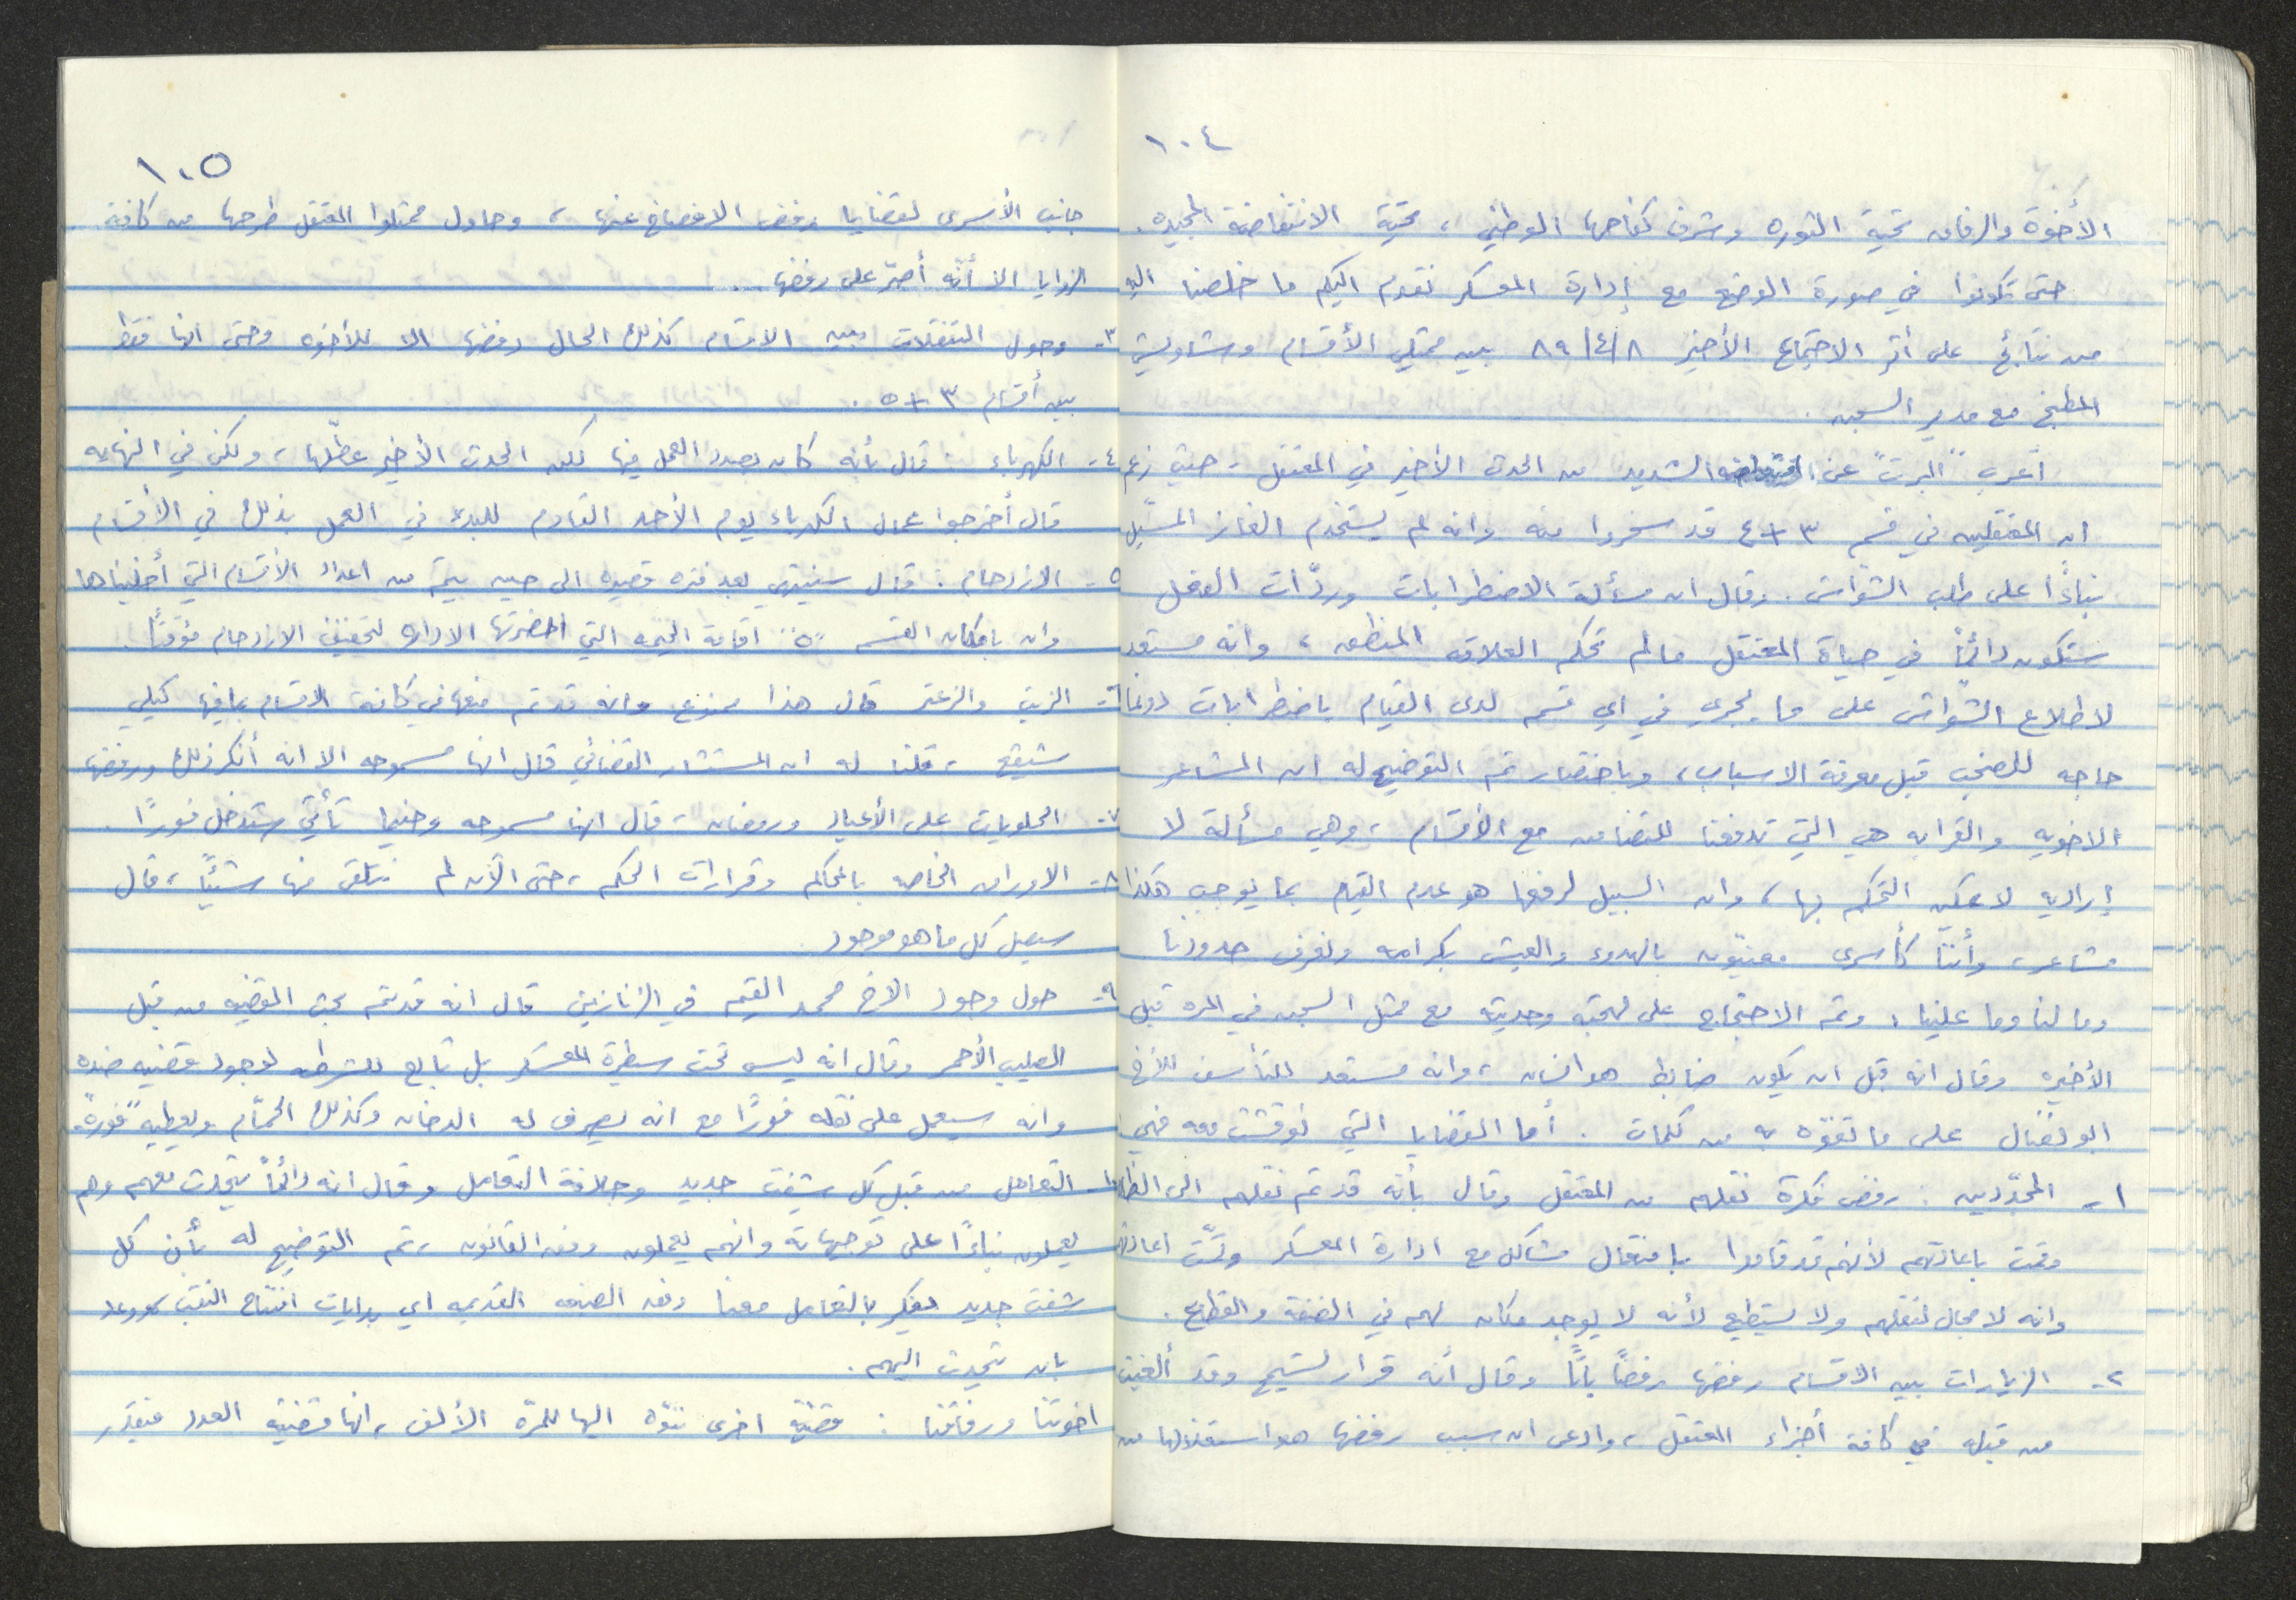 ١٠٤
الأخوة والرفاق تحية الثوره وشرف كفاحها الوطني، تحية الانتفاضة المجيده.
حتى تكونوا في صورة الوضع مع إدارة المعسكر نقدم اليكم ما خلصنا اليه
من نتائج على أثر الاجتماع الأخير ٨٩/٤/٨ بين ممثلي الأقسام وشاويش
المطبخ مع مدير السجن.
أعرب "البرت" عن الشديد من الحدث الأخير في المعتقل - حيث زعم
ان المعتقلين في قسم ٣+٤ قد سخروا منه وانه لم يستخدم الغاز المسيّل
بناءًا على طلب الشوّاش. وقال ان مسألة الاضطرابات وردّات الفعل
ستكون دائماً في حياة المعتقل مالم تحكم العلاقه المنطق، وانه مستعد
لاطلاع الشوّاش على ما يجري في اي قسم لدى القيام باضطرابات دونما
حاجه للصخب قبل معرفة الاسباب، وباختصار تم التوضيح له ان المشاعر
الاخويه والقرابه هي التي تدفعنا للتضامن مع الأقسام، وهي مسألة لا
إراديه لا يمكن التحكم بها، وان السبيل لرفعها هو عدم القيام بما يوجب هكذا
مشاعر، وأننا كأسرى معنيّون بالهدوء والعيش بكرامه ونعرف حدودنا
وما لنا وما علينا، وتم الاحتجاج على لهجته وحديثه مع ممثل السجن في المره قبل
الأخيره وقال انه قبل ان يكون ضابط هو انسان، وانه مستعد للتأسف للأخ
ابو نضال على ما تفوّه به من كلمات. أما القضايا التي نوقشت معه فهي:
١- المحدّدين: رفض فكرة نقلهم من المعتقل وقال بأنه قد تم نقلهم الى
وقمت باعادتهم لأنهم قد قاموا بافتعال مشاكل مع ادارة المعسكر وتمّت اعادتهم
وانه لا مجال لنقلهم ولا يستطيع لأنه لا يوجد مكان لهم في الضفة والقطاع.
٢- الزيارات بين الاقسام رفضها رفضاً باتاً وقال انه قرار لشيمح وقد ألغيت
من قبله في كافة أجزاء المعتقل، وادعى ان سبب رفضها هو استغلالها من
١٠٥
جانب الأسرى لقضايا رفض الافصاح عنها، وحاول ممثلوا المعتقل طرحها من كافة
الزوايا الا أنّه أصرّ على رفضها...
٣- وحول التنقلات بين الاقسام كذلك الحال رفضها الا للأخوه وحتى انها فقط
بين أقسام ٣+٥.
٤- الكهرباء: قال بأنه كان بصدد العمل فيها لكن الحدث الأخير عطّلها، ولكن في النهايه
قال أخرجوا عمال الكهرباء يوم الأحد القادم للبدء في العمل بذلك في الأقسام
٥- الازدحام: قال سينتهي بعد فتره قصيره الى حين يتم من اعداد الأقسام التي أخليناها
وان بامكان القسم "٥" اقامة الخيمه التي احضرتها الاداره لتخفيف الازدحام مؤقتاً.
٦- الزيت والزعتر قال هذا ممنوع وانه قد تم منعها في كافة الاقسام بما فيها كيلي
شيفع، قلنا له ان المستشار القضائي قال انها مسموحه الا انه أنكر ذلك ورفضها
٧- الحلويات على الأعياد ورمضان، قال انها مسموحه وحينما تأتي ستدخل فورًا.
٨- الاوراق الخاصه بالمحاكم وقرارات الحكم، حتى الآن لم نتلقى منها شيئًا، قال
سيصل كل ما هو موجود.
٩- حول وجود الاخ محمد القيم في الزنازين قال انه قد تم بحث القضيه من قبل
الصليب الأحمر وقال انه ليس تحت سيطرة المعسكر بل تابع للشرطه لوجود قضيه ضده
وانه سيعمل على نقله فورًا مع انه يصرف له الدخان وكذلك الحمّام ويعطيه "فوره".
١٠- التعامل من قبل كل شيفت جديد وجلافة التعامل وقال انه دائماً يتحدث معهم وهم
يعملون بناءًا على توجيهاته وانهم يعملون وفق القانون، تم التوضيح له بأن كل
شفت جديد يفكر بالتعامل معنا وفق الصيغه القديمه اي بدايات افتتاح النقب ووعد
بان يتحدث اليهم.
اخوتنا ورفاقنا: قضيّة اخرى ننوّه اليها للمرّه الألف، انها قضيّة العدد فبقدر